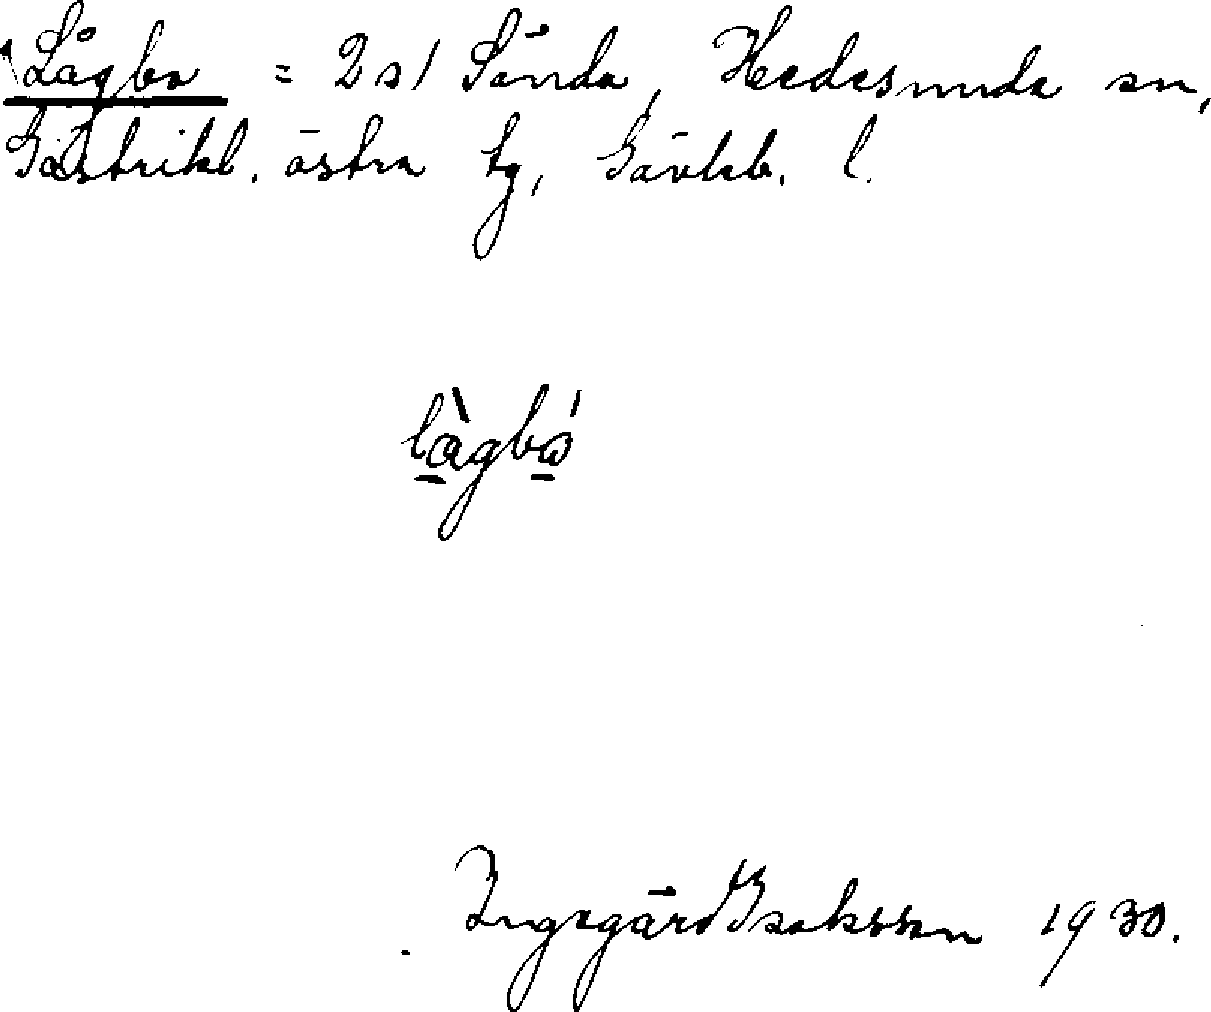 Lågbo = 2 s/ Sånda, Hedesunda sn,
Gästrikl. östra tg, Gävleb. l.
làgbó
Ingegärd Isaksson 1930.